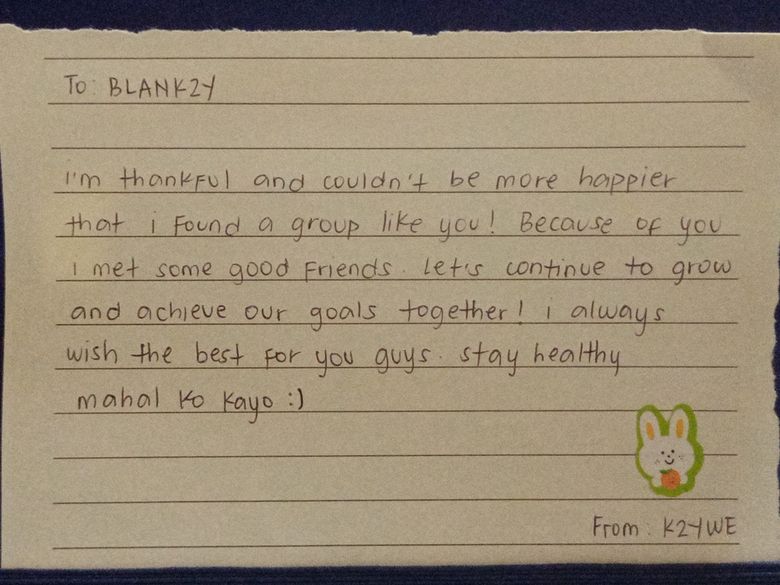 To: BLANK2Y
I'm thankful and couldn't be more happier
that i found a group like you! Because of you
I met some good friends. Let's continue to grow
and achieve our goals together! i always
wish the best for you guys. stay healthy
mahal ko kayo :)
From: K2YWE